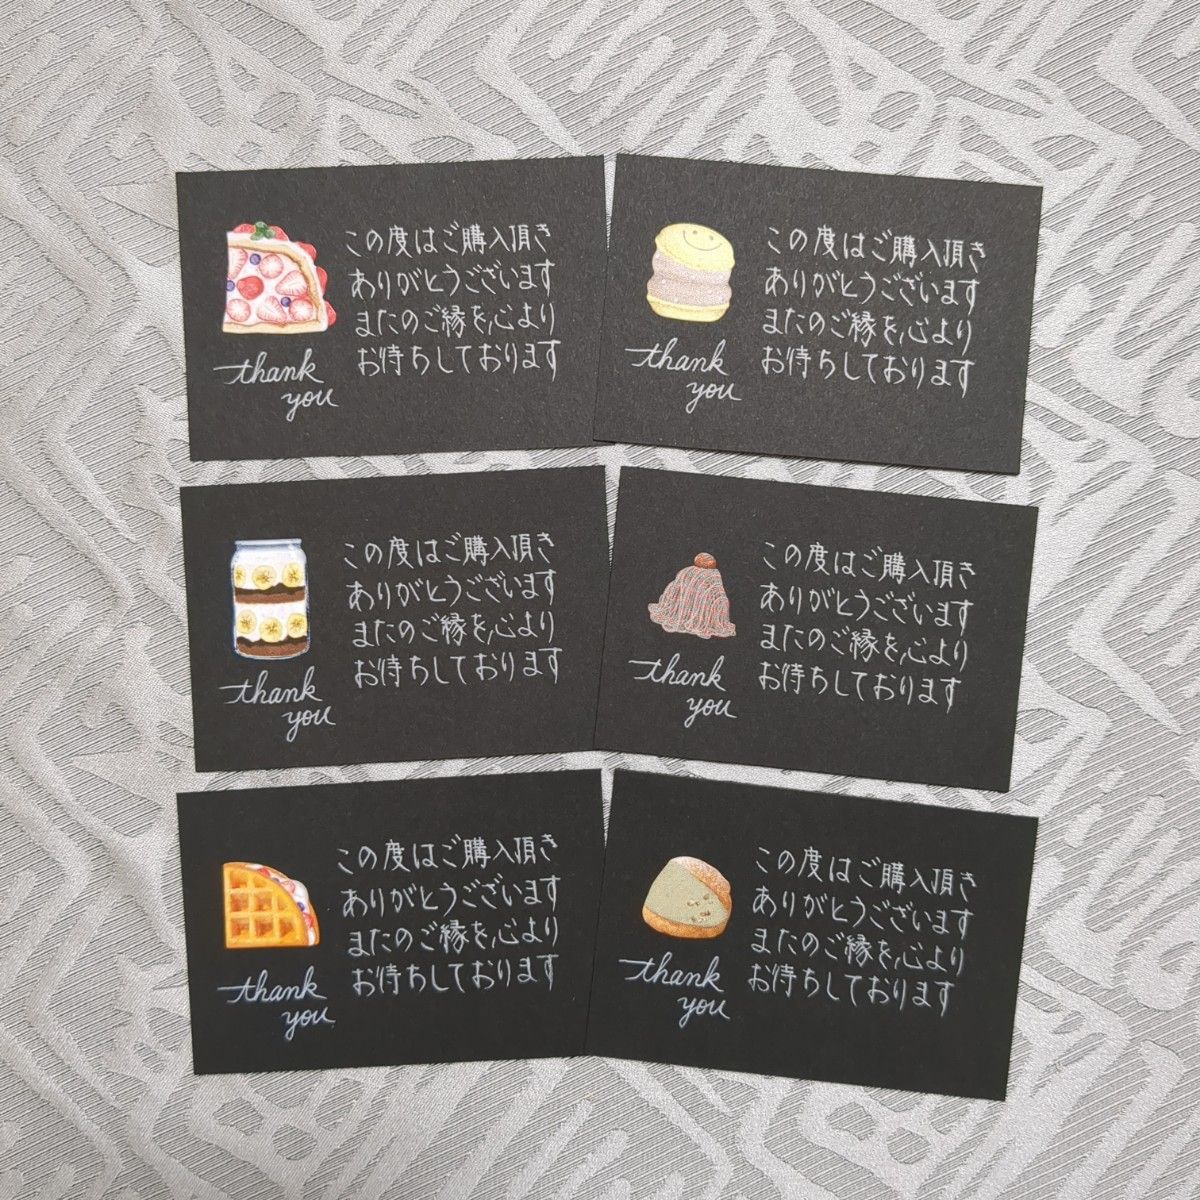 この度はご購入頂き
ありがとうございます
またのご縁を心より
お待ちしております
thank
you
この度はご購入頂き
ありがとうございます
またのご縁を心より
お待ちしております
thank
you
この度はご購入頂き
ありがとうございます
またのご縁を心より
お待ちしております
thank
you
この度はご購入頂き
ありがとうございます
またのご縁を心より
お待ちしております
thank
you
この度はご購入頂き
ありがとうございます
またのご縁を心より
お待ちしております
thank
you
この度はご購入頂き
ありがとうございます
またのご縁を心より
お待ちしております
thank
you